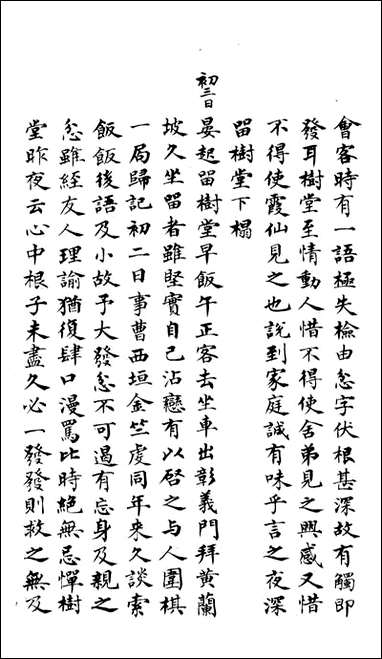 會客時有一語極失檢由忿字伏根甚深故有觸即
發耳樹堂至情動人惜不得使舍弟見之興感又惜
不得使霞仙見之也說到家庭誠有味乎言之夜深
留樹堂下榻
初三日
晏起留樹堂早飯午正客去坐車出彰義門拜黃蘭
坡久坐留者雖堅實自己沾戀有以啓之与人圍棋
一局歸記初二日事曹西垣金竺虔同年来久談索
飯飯後語及小故予大發忿不可遏有忘身及親之
忿雖經友人理諭猶復肆口漫罵比時絕無忌憚樹
堂昨夜云心中根子未盡久必一發發則救之無及